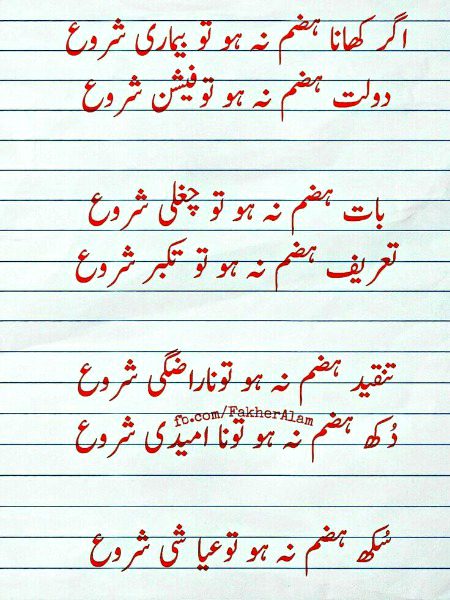 اگر کھانا ہضم نہ ہو تو بیماری شروع
دولت ہضم نہ ہو تو فیشن شروع
بات ہضم نہ ہو تو چغلی شروع
تعریف ہضم نہ ہو تو تکبر شروع
تنقید ہضم نہ ہو تو ناراضگی شروع
fb.com/FakherAlam
دُکھ ہضم نہ ہو تو نا امیدی شروع
سُکھ ہضم نہ ہو تو عیاشی شروع